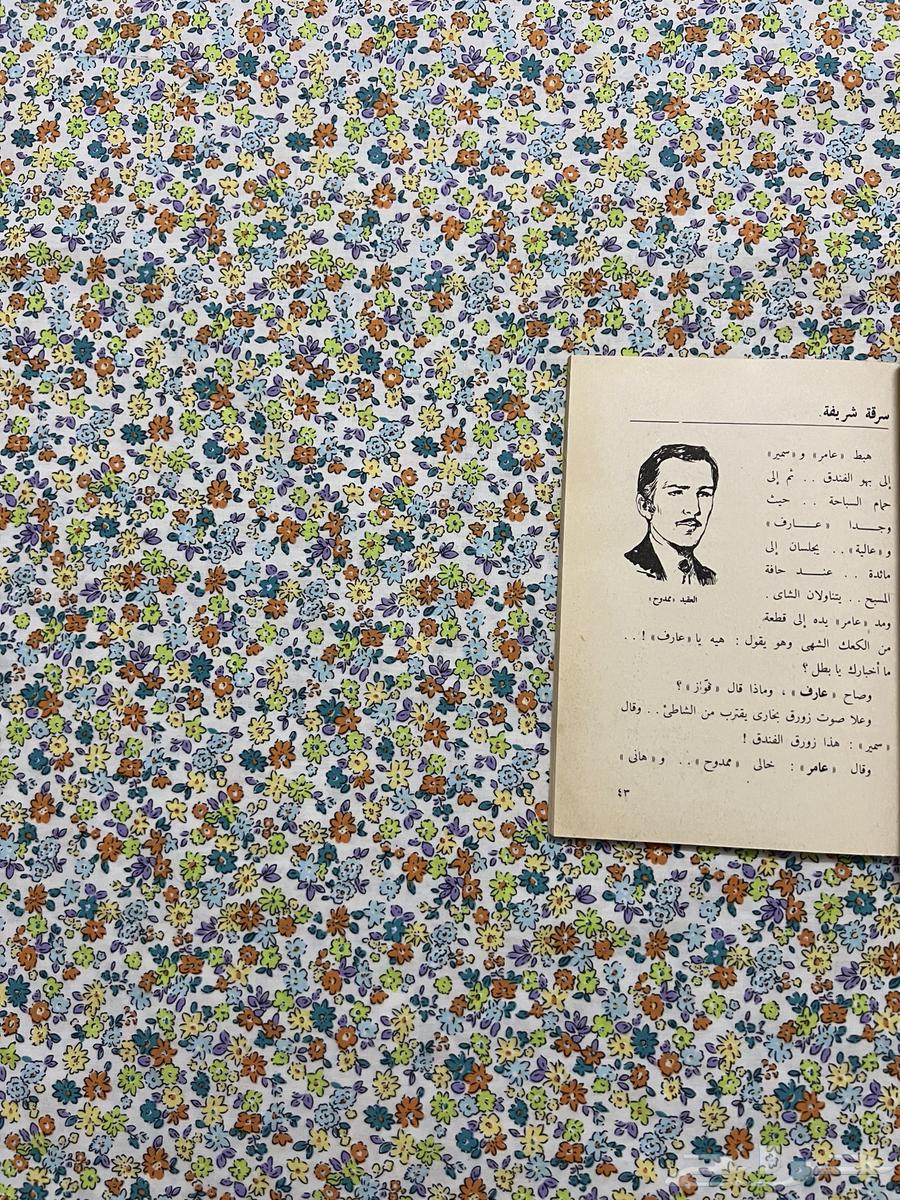 سرقة شريفة
هبط «عامر» و«سمير»
إلى بهو الفندق . . ثم إلى
حمام السباحة . . . حيث
وجدا «عارف»
و«عالية» . . يجلسان إلى
مائدة . . عند حافة
المسبح . . يتناولان الشاى .
العقيد «ممدوح»
ومد «عامر» يده إلى قطعة
من الكعك الشهى وهو يقول : هيه يا «عارف» ! . .
ما أخبارك يا بطل ؟
وصاح «عارف» ، وماذا قال «فواز» ؟
وعلا صوت زورق بخارى يقترب من الشاطئ . . وقال
«سمير» : هذا زورق الفندق !
وقال «عامر» : خالى «ممدوح» . . و«هانى»
٤٣